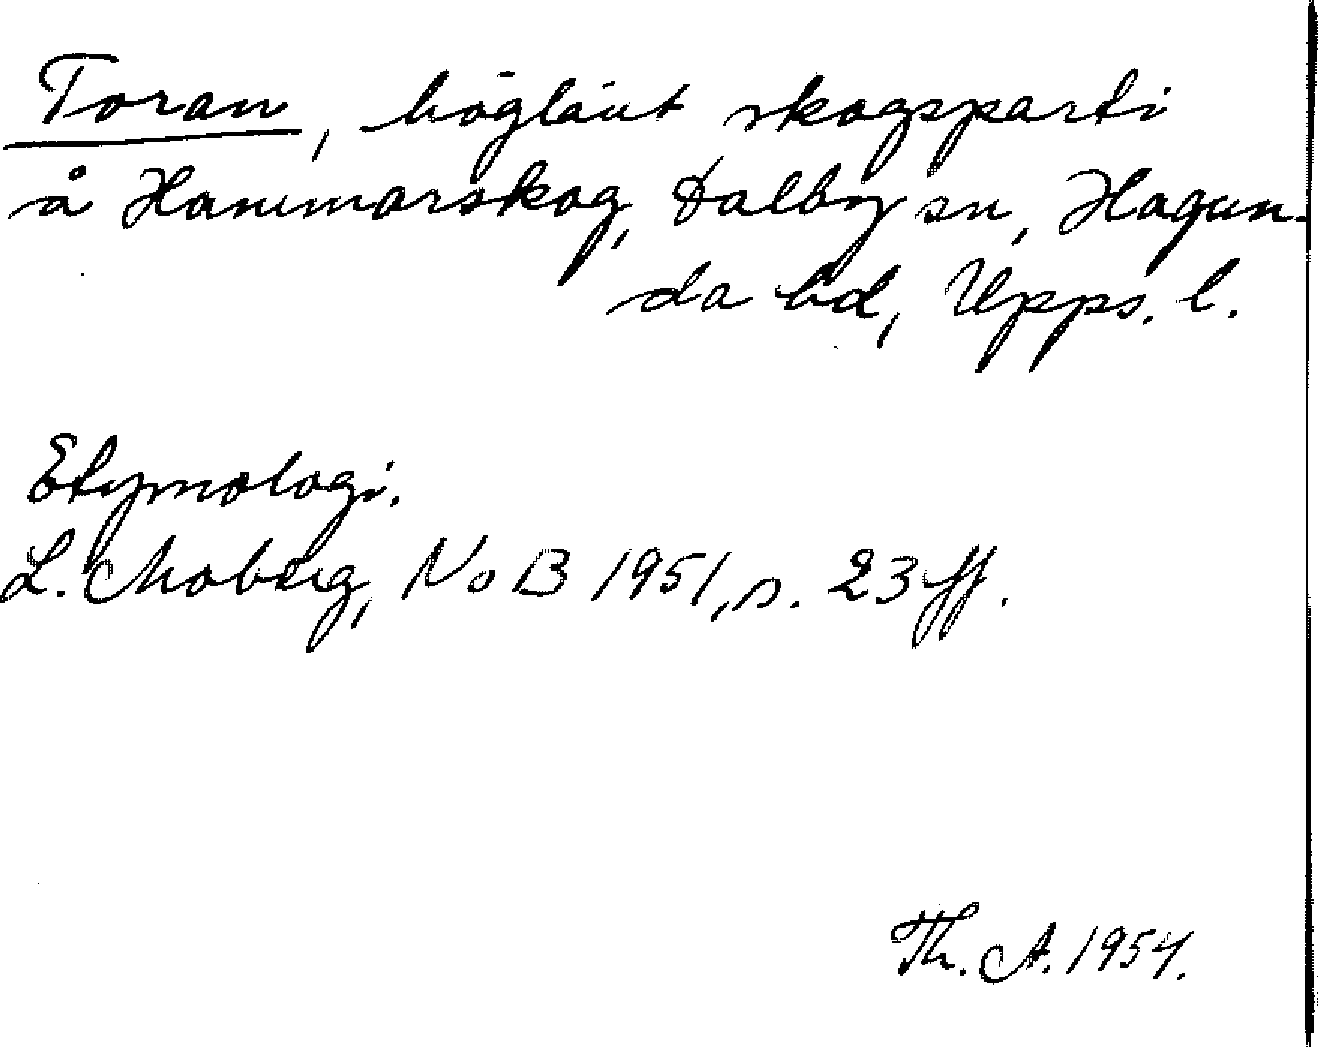 Toran, högläut skogsparti
å Hammarskog, Dalby sn, Hagun-
da hd, Upps. l.
Etymologi.
L. Moberg, NoB 1951, s. 23 ff.
Th. A. 1954.